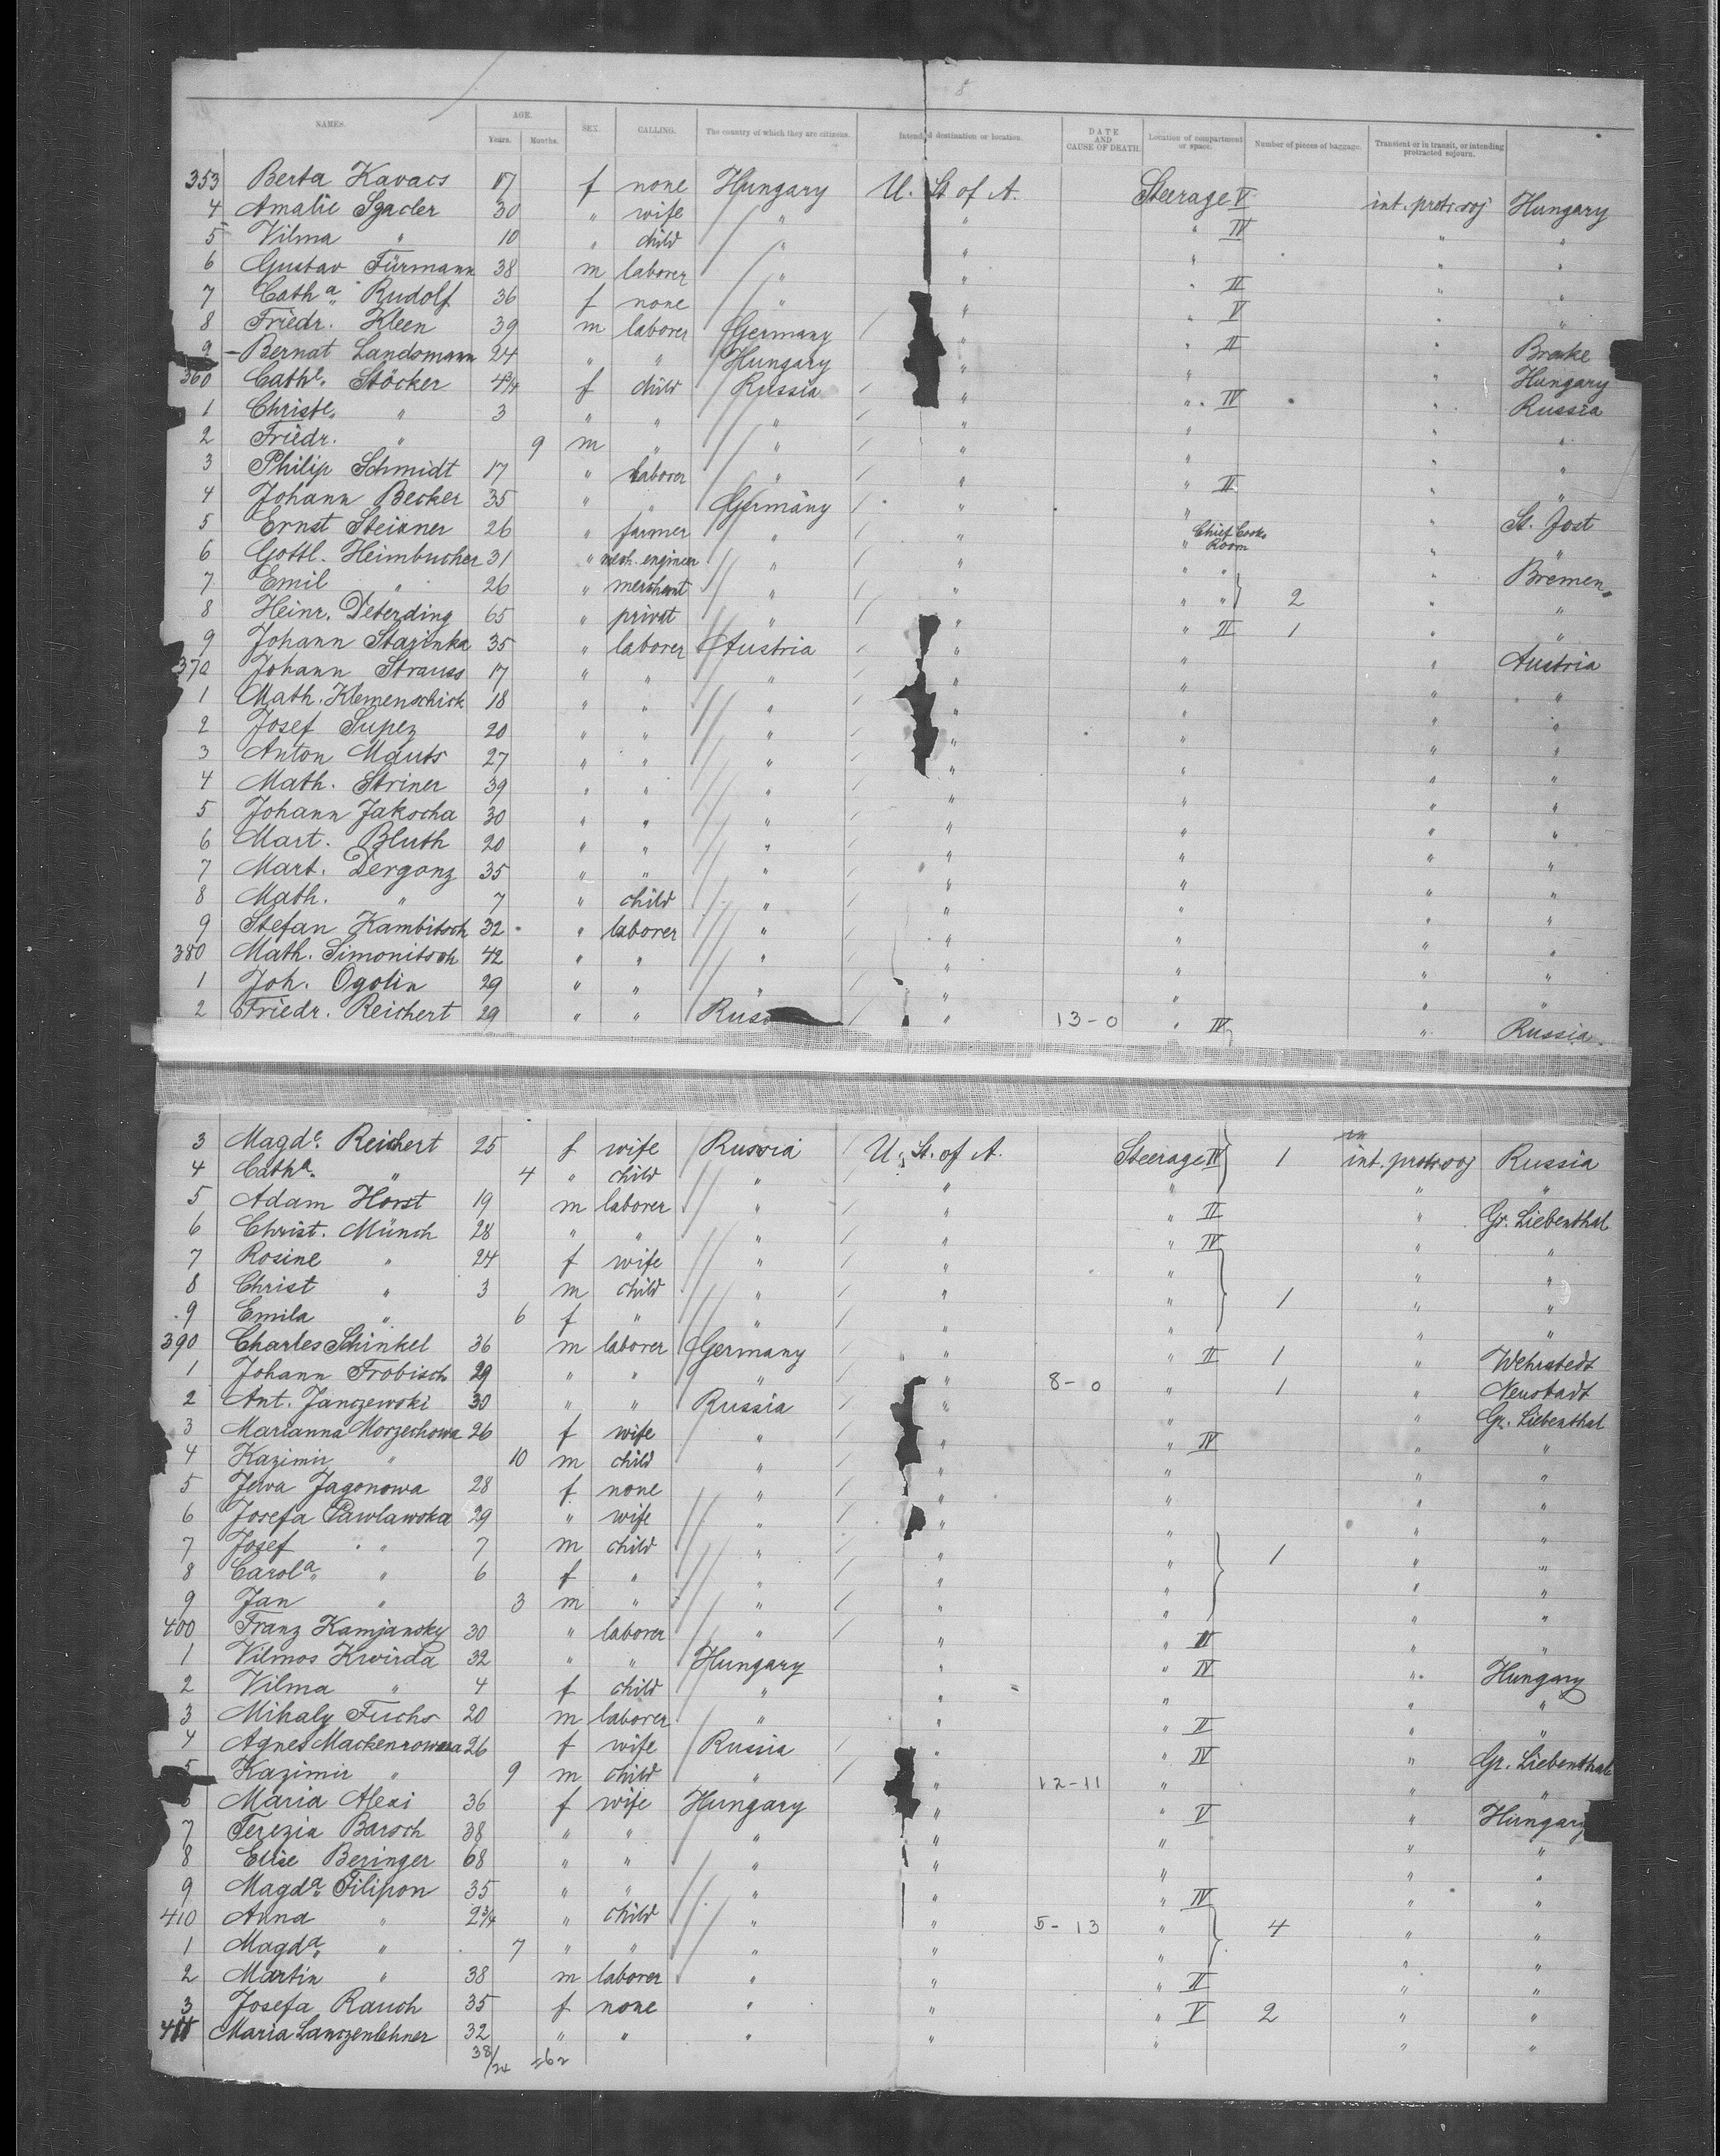 8
NAMES. AGE. Years. Months. SEX. CALLING. The country of which they are citizens. Intended destination or location. DATE AND CAUSE OF DEATH. Location of compartment or space. Number of pieces of baggage. Transient or in transit, or intending protracted sojourn.
353 Berta Kavacs 17 f none Hungary U. St. of A. Steerage V int. protr. soj Hungary
4 Amalie Szacler 30 " wife " " " IV " "
5 Vilma " 10 " child " " " " "
6 Gustav Fürmann 38 m laborer " " " II " "
7 Cath.a Rudolf 36 f none " " " V " "
8 Friedr. Kleen 39 m laborer Germany " " II " Brake
9 Bernat Landsmann 24 " " Hungary " " " Hungary
360 Cath.e Stöcker 4 3/4 f child Russia " " IV " Russia
1 Christe. " 3 " " " " " " "
2 Friedr. " 9 m " " " " " "
3 Philip Schmidt 17 " laborer " " " II " "
4 Johann Becker 35 " " Germany " " " St. Jost
5 Ernst Steixner 26 " farmer " " Chief Cooks Room " "
6 Gottl. Heimbucher 31 " mech. engineer " " " " " Bremen
7 Emil " 26 " merchant " " " " 2 " "
8 Heinr. Deterding 65 " privat " " " II 1 " "
9 Johann Stazinka 35 " laborer Austria " " " Austria
370 Johann Strauss 17 " " " " " " "
1 Math. Klemenschick 18 " " " " " " "
2 Josef Supez 20 " " " " " " "
3 Anton Mauts 27 " " " " " " "
4 Math. Striner 39 " " " " " " "
5 Johann Jakocha 30 " " " " " " "
6 Mart. Bluth 20 " " " " " " "
7 Mart. Derganz 35 " " " " " " "
8 Math. " 7 " child " " " " "
9 Stefan Kambitsch 32 " laborer " " " " "
380 Math. Simonitsch 42 " " " " " " "
1 Joh. Ogolin 29 " " " " " " "
2 Friedr. Reichert 29 " " Russ " 13-0 " IV " Russia
3 Magd.e Reichert 25 f wife Russia U. St. of A. Steerage IV 1 int. protr. soj Russia
4 Cath.a " 4 " child " " " " "
5 Adam Horst 19 m laborer " " " II " Gr. Liebenthal
6 Christ. Münch 28 " " " " " IV " "
7 Rosine " 24 f wife " " " " "
8 Christ " 3 m child " " " 1 " "
9 Emila " 6 f " " " " " "
390 Charles Schinkel 36 m laborer Germany " " II 1 " Wehrstedt
1 Johann Frobisch 29 " " " " 8-0 " 1 " Neustadt
2 Ant. Janczewski 30 " " Russia " " " Gr. Liebenthal
3 Marianna Morzechowa 26 f wife " " " IV " "
4 Kazimir " 10 m child " " " " "
5 Jewa Jagonowa 28 f none " " " " "
6 Josefa Pawlawska 29 " wife " " " " "
7 Josef " 7 m child " " " 1 " "
8 Carol.a " 6 f " " " " " "
9 Jan " 3 m " " " " " "
400 Franz Kamjansky 30 " laborer " " " II " "
1 Vilmos Kwirda 32 " " Hungary " " IV " Hungary
2 Vilma " 4 f child " " " " "
3 Mihaly Fuchs 20 m laborer " " " II " "
4 Agnes 26 f wife Russia " " IV " Gr. Liebenthal
5 Kazimir " 9 m child " " 12-11 " " "
6 Maria Alexi 36 f wife Hungary " " V " Hungary
7 Terezia Barsch 38 " " " " " " "
8 Elise Beringer 68 " " " " " " "
9 Magd.a Filipon 35 " " " " " IV " "
410 Anna " 2 3/4 " child " " 5-13 " 4 " "
1 Magd.a " 7 " " " " " " "
2 Martin " 38 m laborer " " " II " "
3 Josefa Rauch 35 f none " " " V 2 " "
414 Maria Lanczenlehner 32 " " " " " " "
38/24 =62